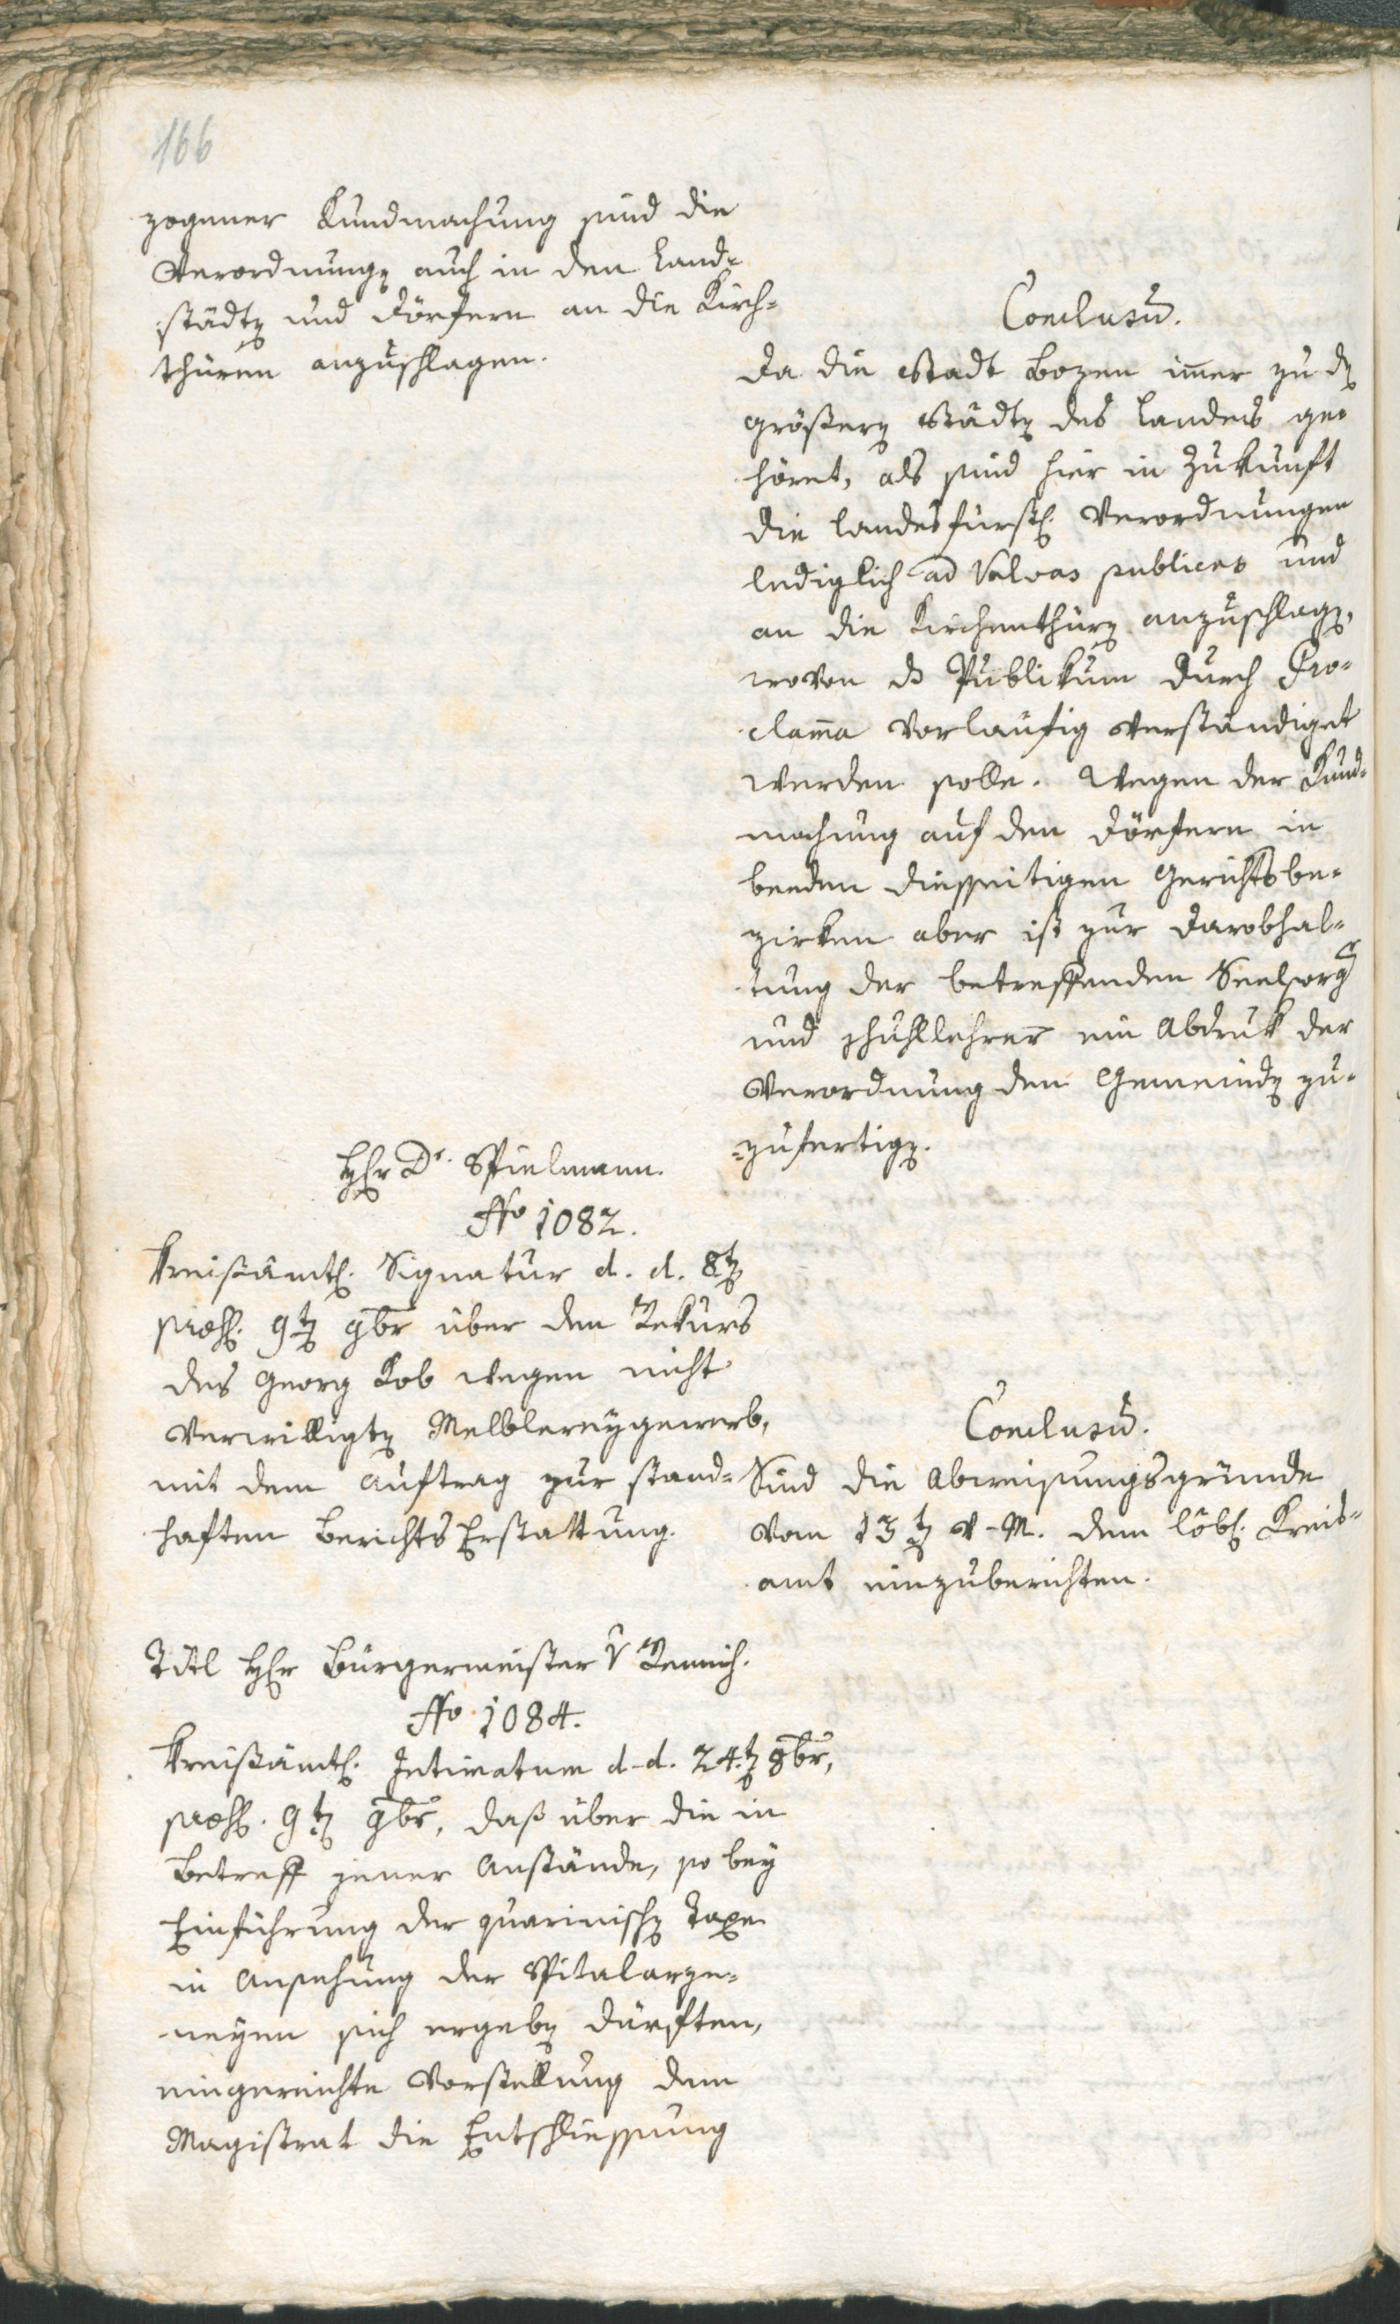 166
zogener Kundmachung sind die
Verordnungen auch in den Land-
städten und Dörfern an die Kirch-
thüren anzuschlagen.
Conclusum.
Da die Stadt Bozen immer zu den
größeren Städten des Landes ge-
höret, als sind hier in Zukunft
die landesfürstl. Verordnungen
lediglich ad Valvas publicas und
an die Kirchenthüren anzuschlagen,
wovon das Publikum durch Pro-
clama vorläufig verständiget
werden solle. Wegen der Kund-
machung auf den Dörfern in
beeden diesseitigen Gerichtsbe-
zirken aber ist zur Darobhal-
tung der betreffenden Seelsorger
und Schullehrer ein Abdruk der
Verordnung den Gemeinden zu-
zufertigen.
Herr Dr. Spielmann.
No 1082.
Kreisämtl. Signatur d. d. 8ten
praes. 9ten 9ber über den Rekurs
des Georg Kob wegen nicht
verwilligten Melblereygewerb,
mit dem Auftrag zur stand-
haften BerichtsErstattung.
Conclusum.
Sind die Abweisungsgründe
vom 13ten v. M. dem löbl. Kreis-
amt einzuberichten.
Titl Herr Bürgermeister v Remich.
No 1084.
Kreisämtl. Intimatum d. d. 24ten 8ber,
praes. 9ten 9ber, daß über die in
Betreff jener Anstände, so bey
Einführung der quarinischen Taxe
in Ansehung der Spitalarze-
neyen sich ergeben dürften,
eingereichte Vorstellung dem
Magistrat die Entschliessung